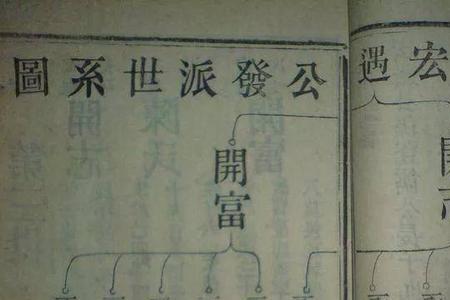 宏遇公發派世系圖
開富